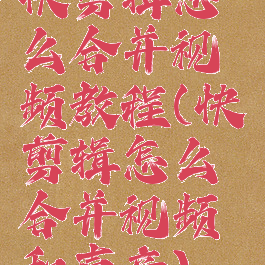 快剪辑怎
么合并视
频教程(快
剪辑怎么
合并视频